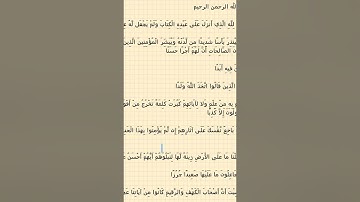 لله الرحمن الرحيم
لله الذي أنزل على عبده الكتاب ولم يجعل له
لينذر بأسا شديدا من لدنه ويبشر المؤمنين الذين
الصالحات أن لهم أجرا حسنا
فيه أبدا
الذين قالوا اتخذ الله ولدا
به من علم ولا لآبائهم كبرت كلمة تخرج من
إلا كذبا
باخع نفسك على آثارهم إن لم يؤمنوا بهذا
ما على الأرض زينة لها لنبلوهم أيهم أحسن
لجاعلون ما عليها صعيدا جرزا
أن أصحاب الكهف والرقيم كانوا من آياتنا